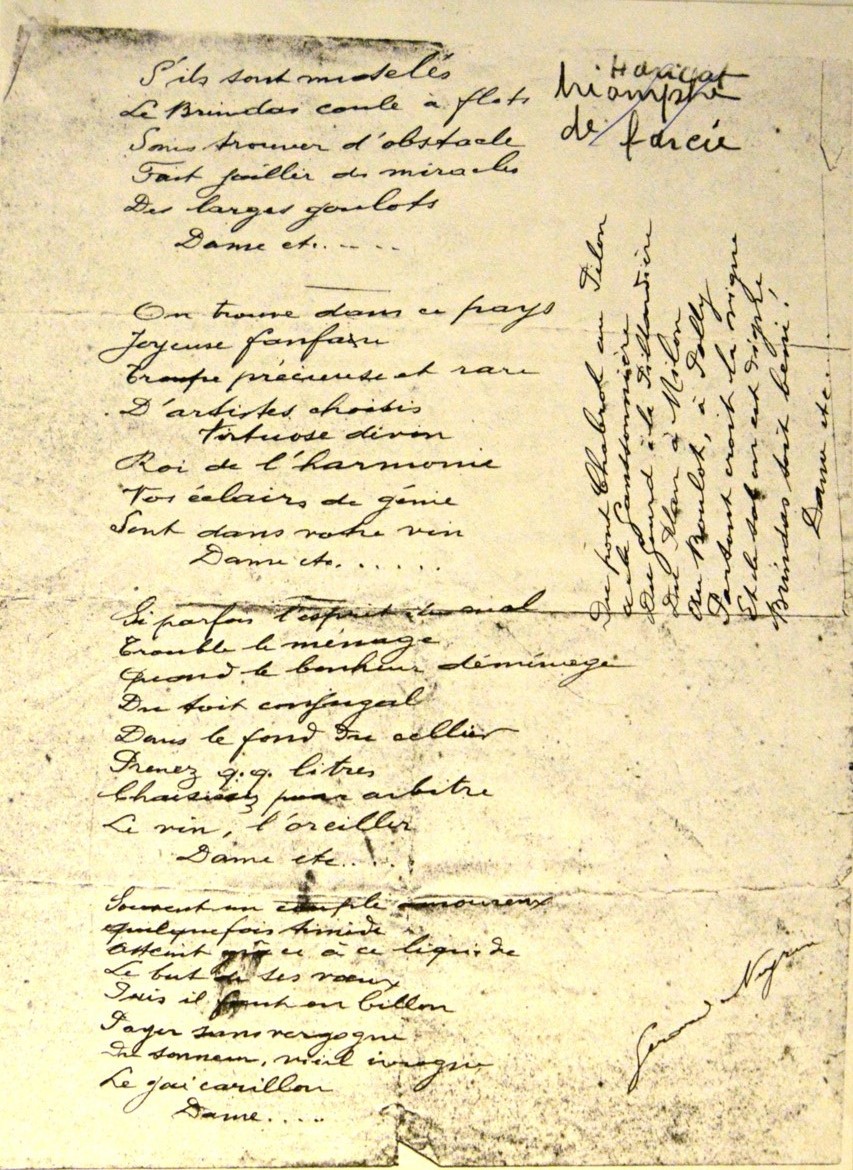 S'ils sont muselés
Le Brindas coule à flots
Sans trouver d'obstacle
Fait jaillir des miracles
Des larges goulots
Dame etc.....
On trouve dans ce pays
Joyeuse fanfare
Troupe précieuse et rare
D'artistes choisis
Virtuose divin
Roi de l'harmonie
Vos éclairs de génie
Sont dans votre vin
Dame etc......
Si parfois l'esprit du mal
Trouble le ménage
Quand le bonheur déménage
Du toit conjugal
Dans le fond du cellier
Prenez q.q. litres
Choisissez pour arbitre
Le vin, l'oreiller
Dame etc.....
Souvent un couple amoureux
quelquefois timide
Atteint grâce à ce liquide
Le but de ses vœux
Puis il faut en billon
Payer sans vergogne
Du sonneur, vieil ivrogne
Le gai carillon
Dame....
triomphe
de farcie
Du pont Chabrol au Pilon
à la
Du Gourd à la
Du Plan à Milon
Au Boulot, à Polly
Partout croit la vigne
Et le sol en est digne
Brindas soit béni!
Dame etc....